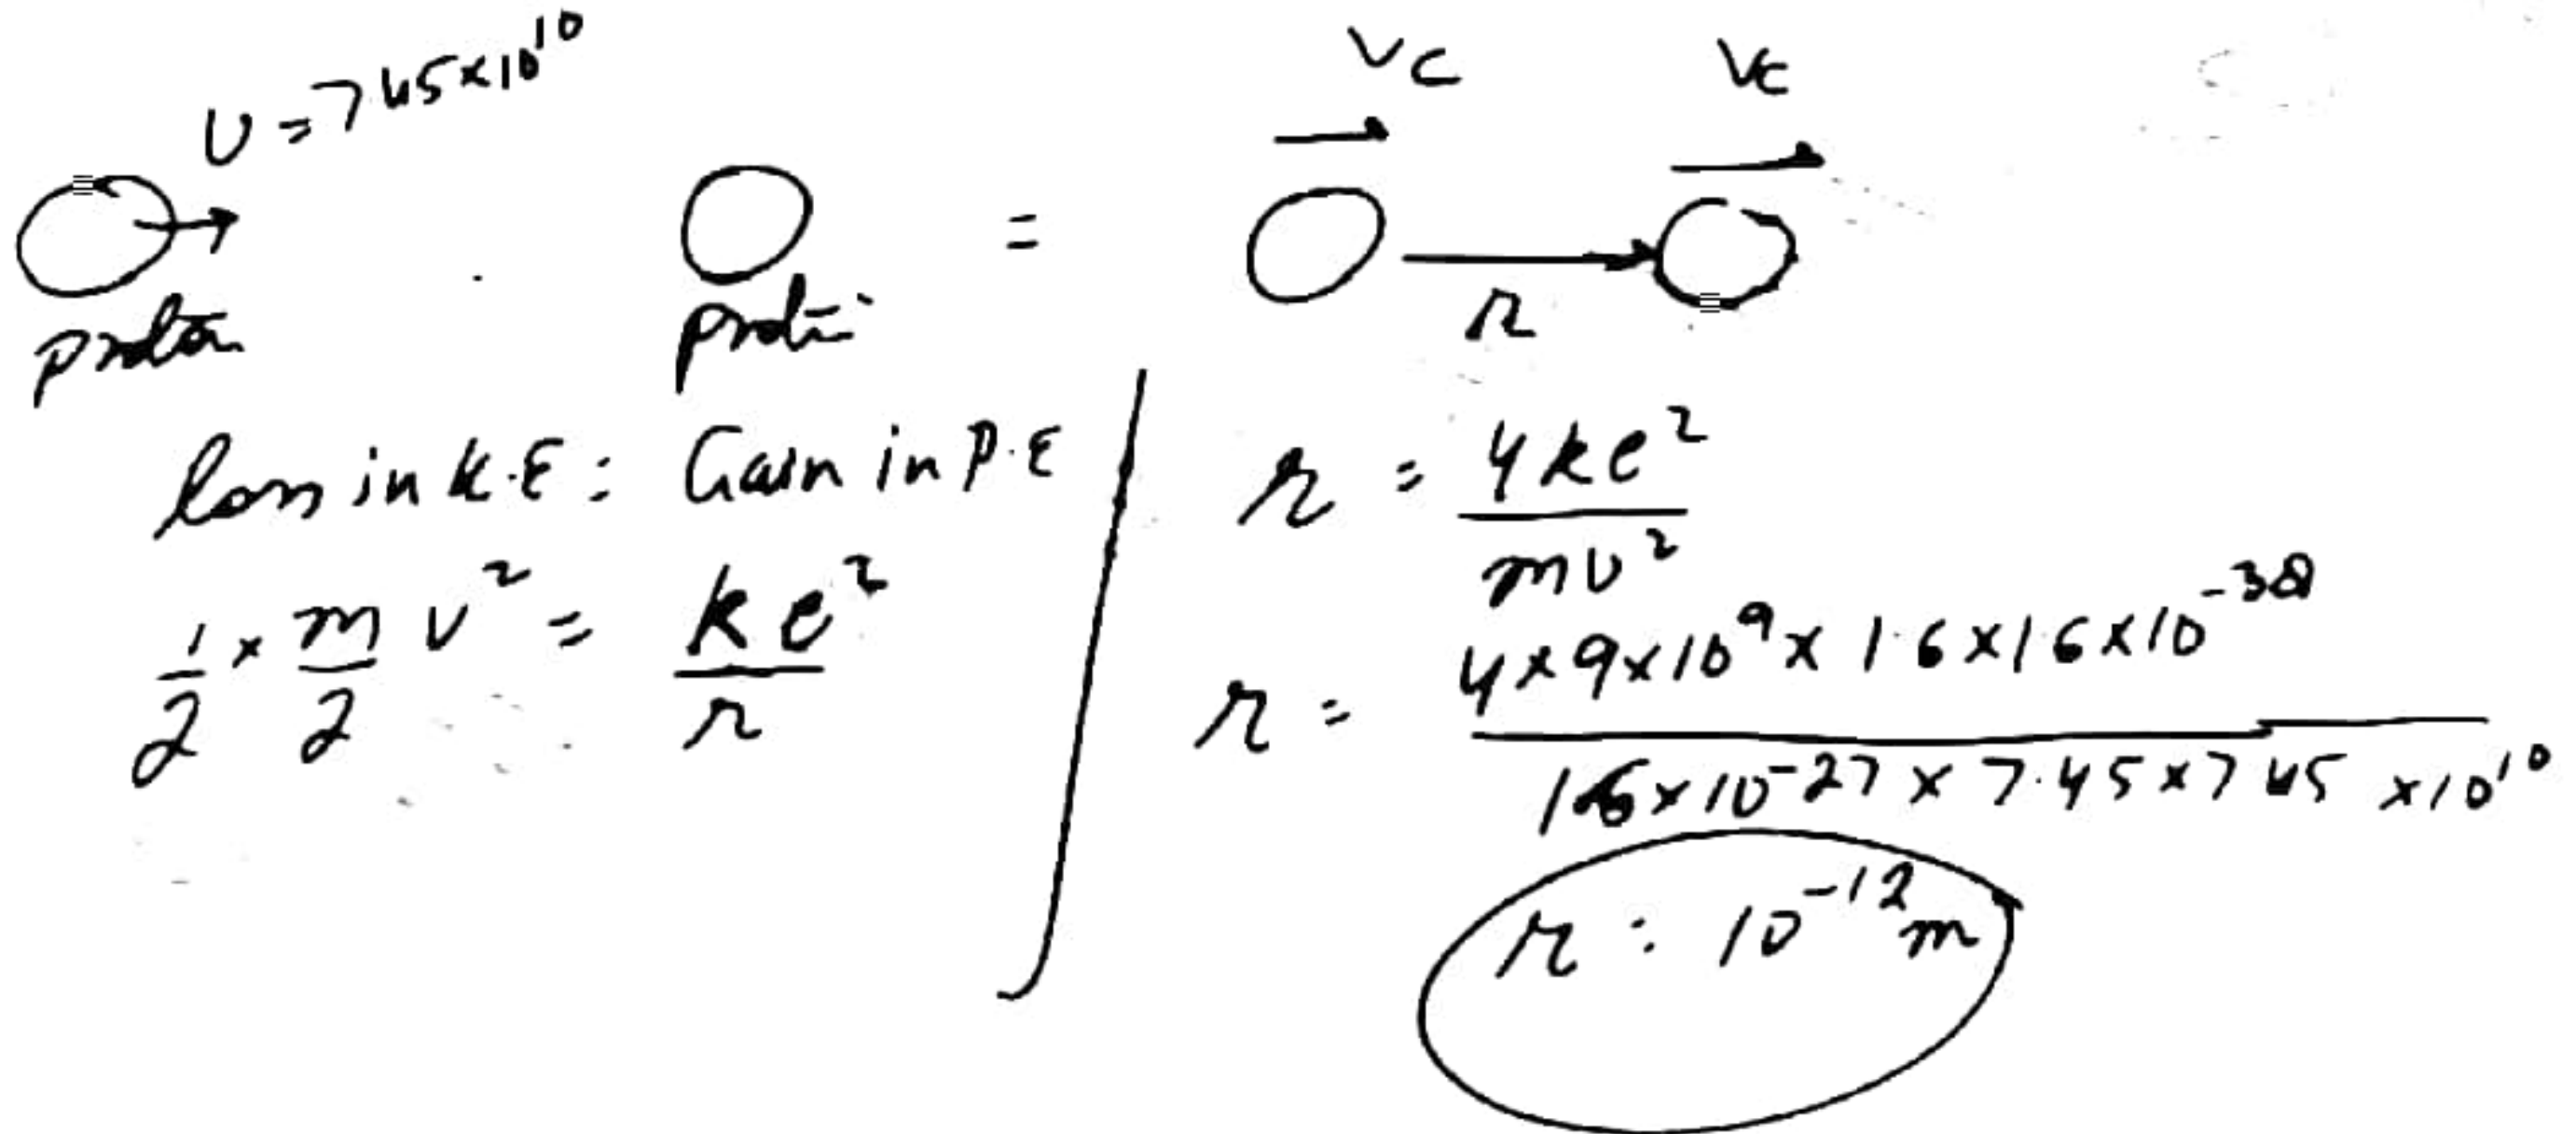 υ = 7.45×10^10
proton
proton
=
Vc
Vc
r
loss in K.E = Gain in P.E
1/2 × m/2 v² = ke²/r
r = 4ke²/mv²
r = 4×9×10^9×1.6×1.6×10^-38 / 1.6×10^-27×7.45×7.45×10^10
r = 10^-12 m